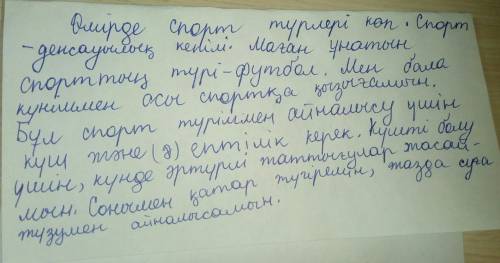 Өмірде спорт түрлері көп. Спорт
- денсаулық кепілі. Маған ұнатын
спорттың түрі - футбол. Мен бала
күнімнен осы спортқа қызығамын.
Бұл спорт түріммен айналысу үшін
күш және (ә) ептілік керек. Күшті болу
үшін, күнде әртүрлі жаттығулар жасай-
мын. Сонымен қатар жүгіремін, жазда суға
жүзумен айналысамын.